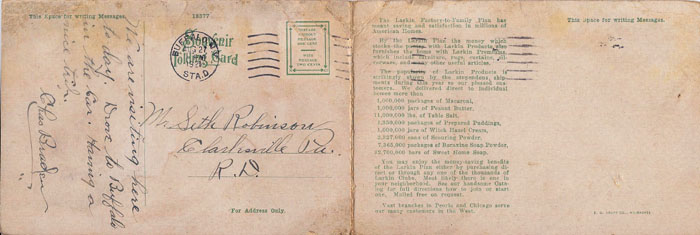 This Space for writing Messages.
18577
Souvenir
Folding Card
BUFFALO, N.Y.
STA. D.
We are visiting here
to day. Drove to Buffalo
in the Car. Having a
nice time.
Mr Seth Robinson
Clarksville Pa.
R.D.
For Address Only.
The Larkin Factory-to-Family Plan has
meant saving and satisfaction in millions of
American Homes.
By the Larkin Plan the money which
stocks the pantry with Larkin Products also
furnishes the home with Larkin Premiums
which include furniture, rugs, curtains, silverware, and many other useful articles.
The popularity of Larkin Products is
strikingly shown by the stupendous shipments during this year to our pleased customers. We delivered direct to individual
homes more than
packages of Macaroni,
jars of Peanut Butter,
lbs. of Table Salt,
packages of Prepared Puddings,
jars of Witch Hazel Cream,
cans of Scouring Powder,
packages of Boraxine Soap Powder,
bars of Sweet Home Soap.
You may enjoy the money-saving benefits
of the Larkin Plan either by purchasing direct or through any one of the thousands of
Larkin Clubs. Most likely there is one in
your neighborhood. See our handsome Catalog for full directions how to join or start
one. Mailed free on request.
Vast branches in Peoria and Chicago serve
our many customers in the West.
This Space for writing Messages.